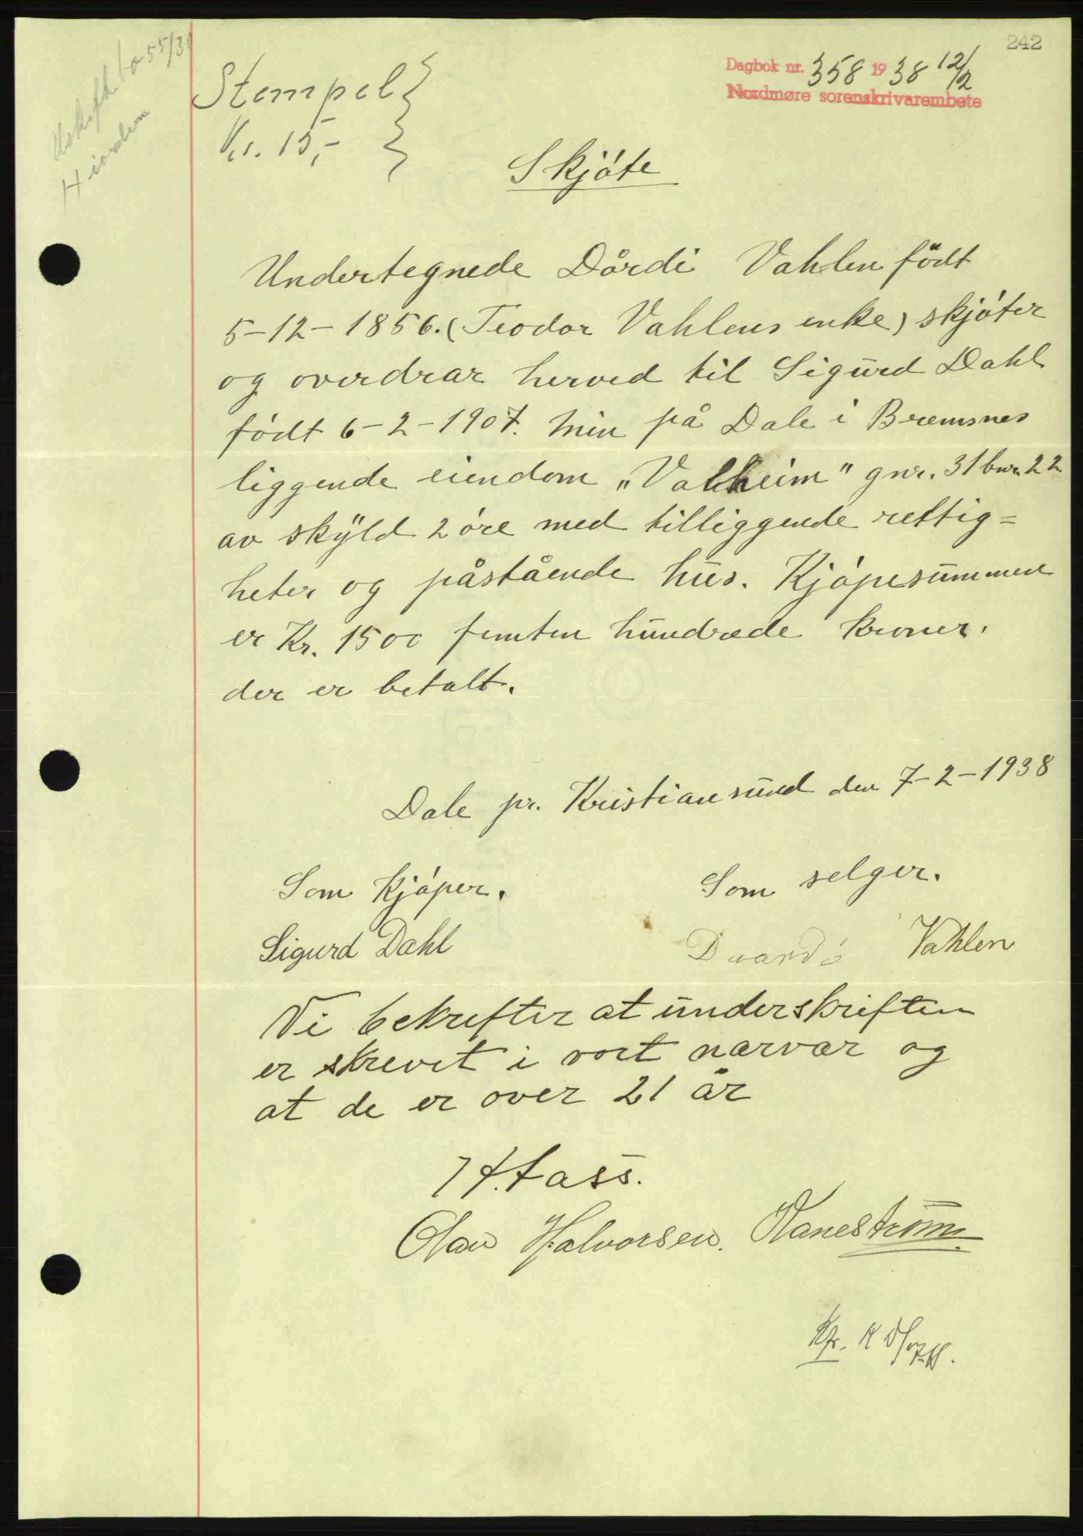 242
Dagbok nr. 358 1938 12/2
Nordmøre sorenskrivarembete
Stempel
Kr. 15,-
Skjøte
Undertegnede Dårdi Vahlen født
5-12-1856. (Teodor Vahlens enke) skjøter
og overdrar herved til Sigurd Dahl
født 6-2-1907. min på Dale i Bremsnes
liggende eiendom „Valheim" gnr. 31 bnr. 22
av skyld 2 øre med tilliggende rettig=
heter og påstående hus. Kjøpesummen
er Kr. 1500 femten hundrede kroner.
der er betalt.
Dale pr. Kristiansund den 7-2-1938
Som Kjøper.
Som selger.
Sigurd Dahl
Vahlen
Vi bekrefter at underskriften
er skrevet i vort nærvær og
at de er over 21 år
Olav Halvorsen. Vanestrøm.